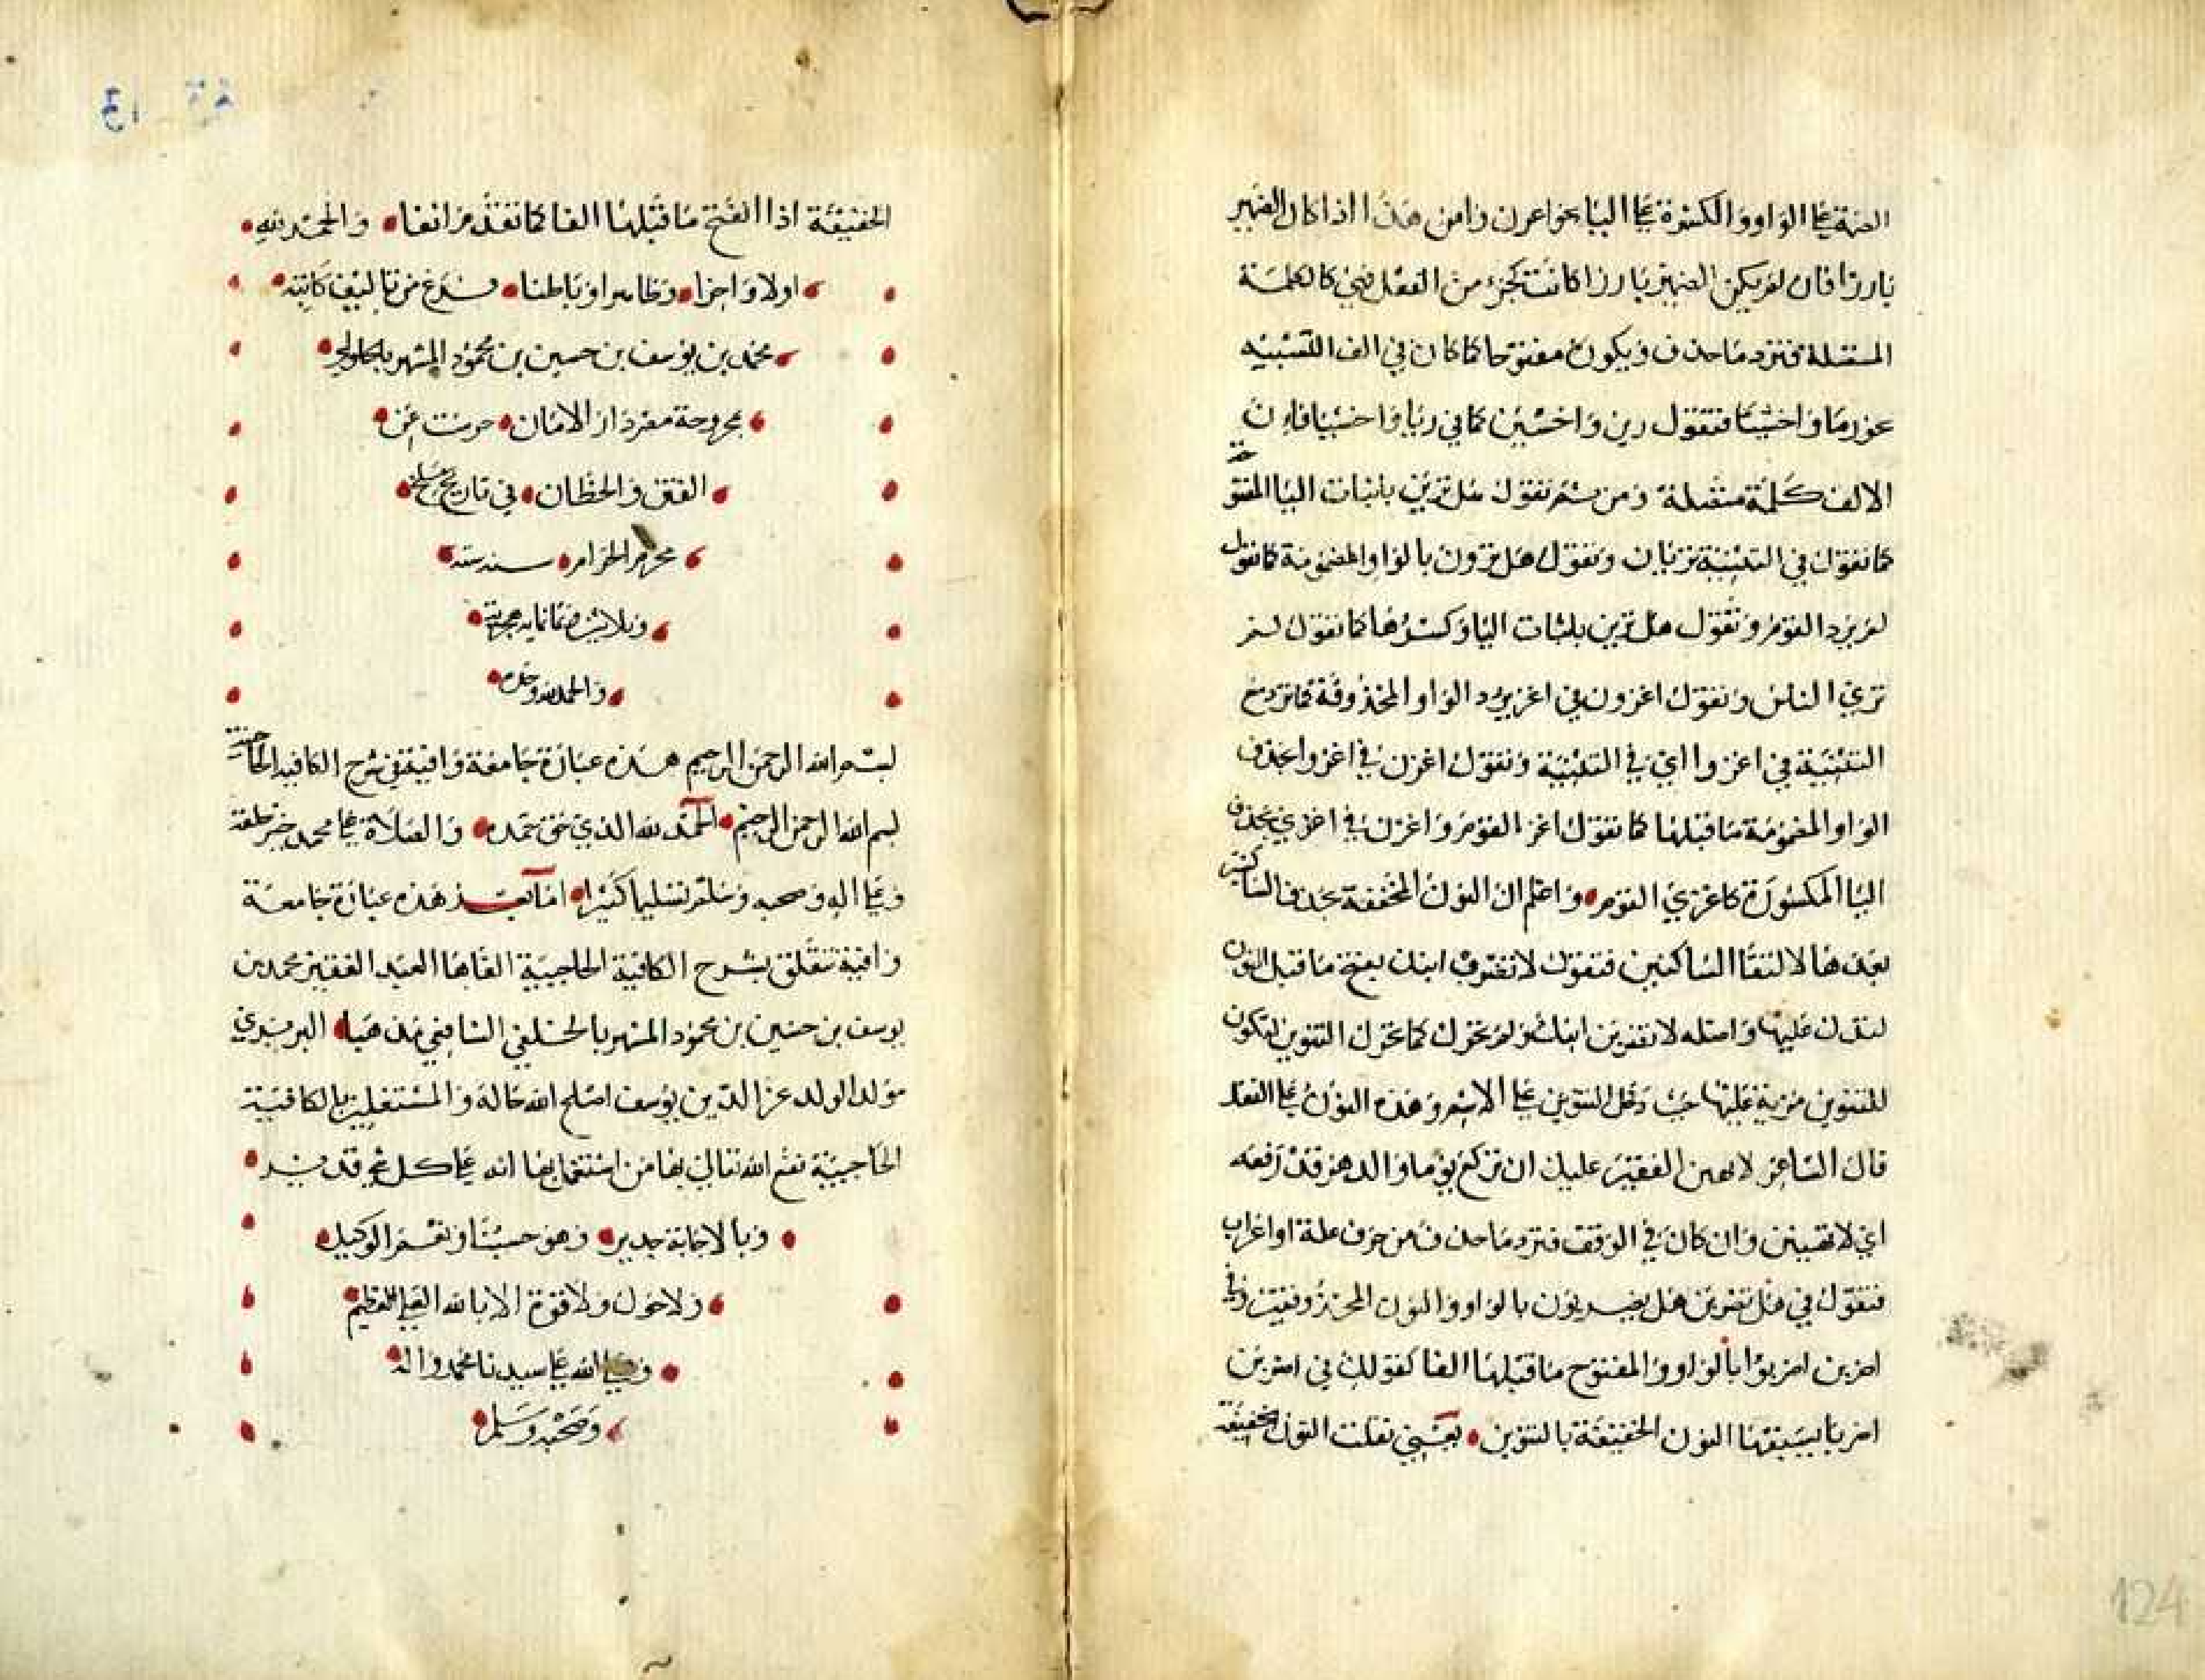 الضمة على الواو والكسرة على اليا نحو اغزن وامن هذا اذا كان الضمير
بارزا فان لم يكن الضمير بارزا كانت كجزء من الفعل فهي كالكلمة
المتصلة فترد ما حذف ويكون مفتوحا كما كان في الف التثنيه
نحو رما واخشيا فتقول رين واخشين كما في ريا واخشيا فان
الالف كلمة متصلة ومن ثم تقول هل ترين باثبات اليا المفتوحة
كما تقول في التثنية تريان وتقول هل ترون بالواو المضمومة كما تقول
لم يرد القوم وتقول هل ترين باثبات اليا وكسرها كما تقول لم
تري الناس وتقول اغزون في اغز برد الواو المحذوفة كما ترد مع
التثنية في اغزوا اي في التثنية وتقول اغزن في اغزوا بحذف
الواو المضمومة ما قبلها كما تقول اغز القوم واغزن في اغزي بحذف
اليا المكسورة كاغزي القوم واعلم ان النون المخففة تحذف الساكنين
بعدها لالتقا الساكنين فتقول لا تضرب ابنك بفتح ما قبل النون
لتدل عليها واصله لا تضربن ابنك ولم تحرك كما تحرك التنوين لتكون
للتنوين مزية عليها حيث دخل التنوين على الاسم وهذه النون على الفعل
قال الشاعر لا تهين الفقير عليك ان تركع يوما والدهر قد رفعه
اي لا تهينن وان كان في الوقف فترد ما حذف من حرف علة او اعراب
فتقول في هل تضربن هل يضربون بالواو والنون المحذوفتين وفي
اضربن اضربوا بالواو والمفتوح ما قبلها الفا كقولك في اضربن
اضربا تشبيها النون الخفيفة بالتنوين يعني تقلب النون الخفيفة
الخفيفة اذا انفتح ما قبلها الفا كما تقدم انفا والحمد لله
اولا واخرا وظاهرا وباطنا فرغ من تاليف كاتبه
محمد بن يوسف بن حسين بن محمود المشهر
بمحروسة دار الامان حرست عن
الفتن والحدثان في تاريخ سلخ
محرم الحرام سنة ستة
وثلاثين ثمانمايه هجرية
والحمد لله وحده
بسم الله الرحمن الرحيم هذه عبارة جامعة وافية في شرح الكافية الحاجبية
بسم الله الرحمن الرحيم الحمد لله الذي حق حمده والصلاة على محمد خير خلقه
وعلى اله وصحبه وسلم تسليما كثيرا اما بعد هذه عبارة جامعة
وافية تتعلق بشرح الكافية الحاجبية الفاها العبد الفقير محمد بن
يوسف بن حسين بن محمود المشهر بالحسلفي الشافعي مذهبا
مولدا لولد عز الدين يوسف اصلح الله حاله والمشتغلين بالكافية
الحاجبية نفع الله تعالى بها من اشتغل بها انه على كل شي قدير
وبالاجابة جدير وهو حسبنا ونعم الوكيل
ولا حول ولا قوة الا بالله العلي العظيم
وصلى الله على سيدنا محمد واله
وصحبه وسلم
124